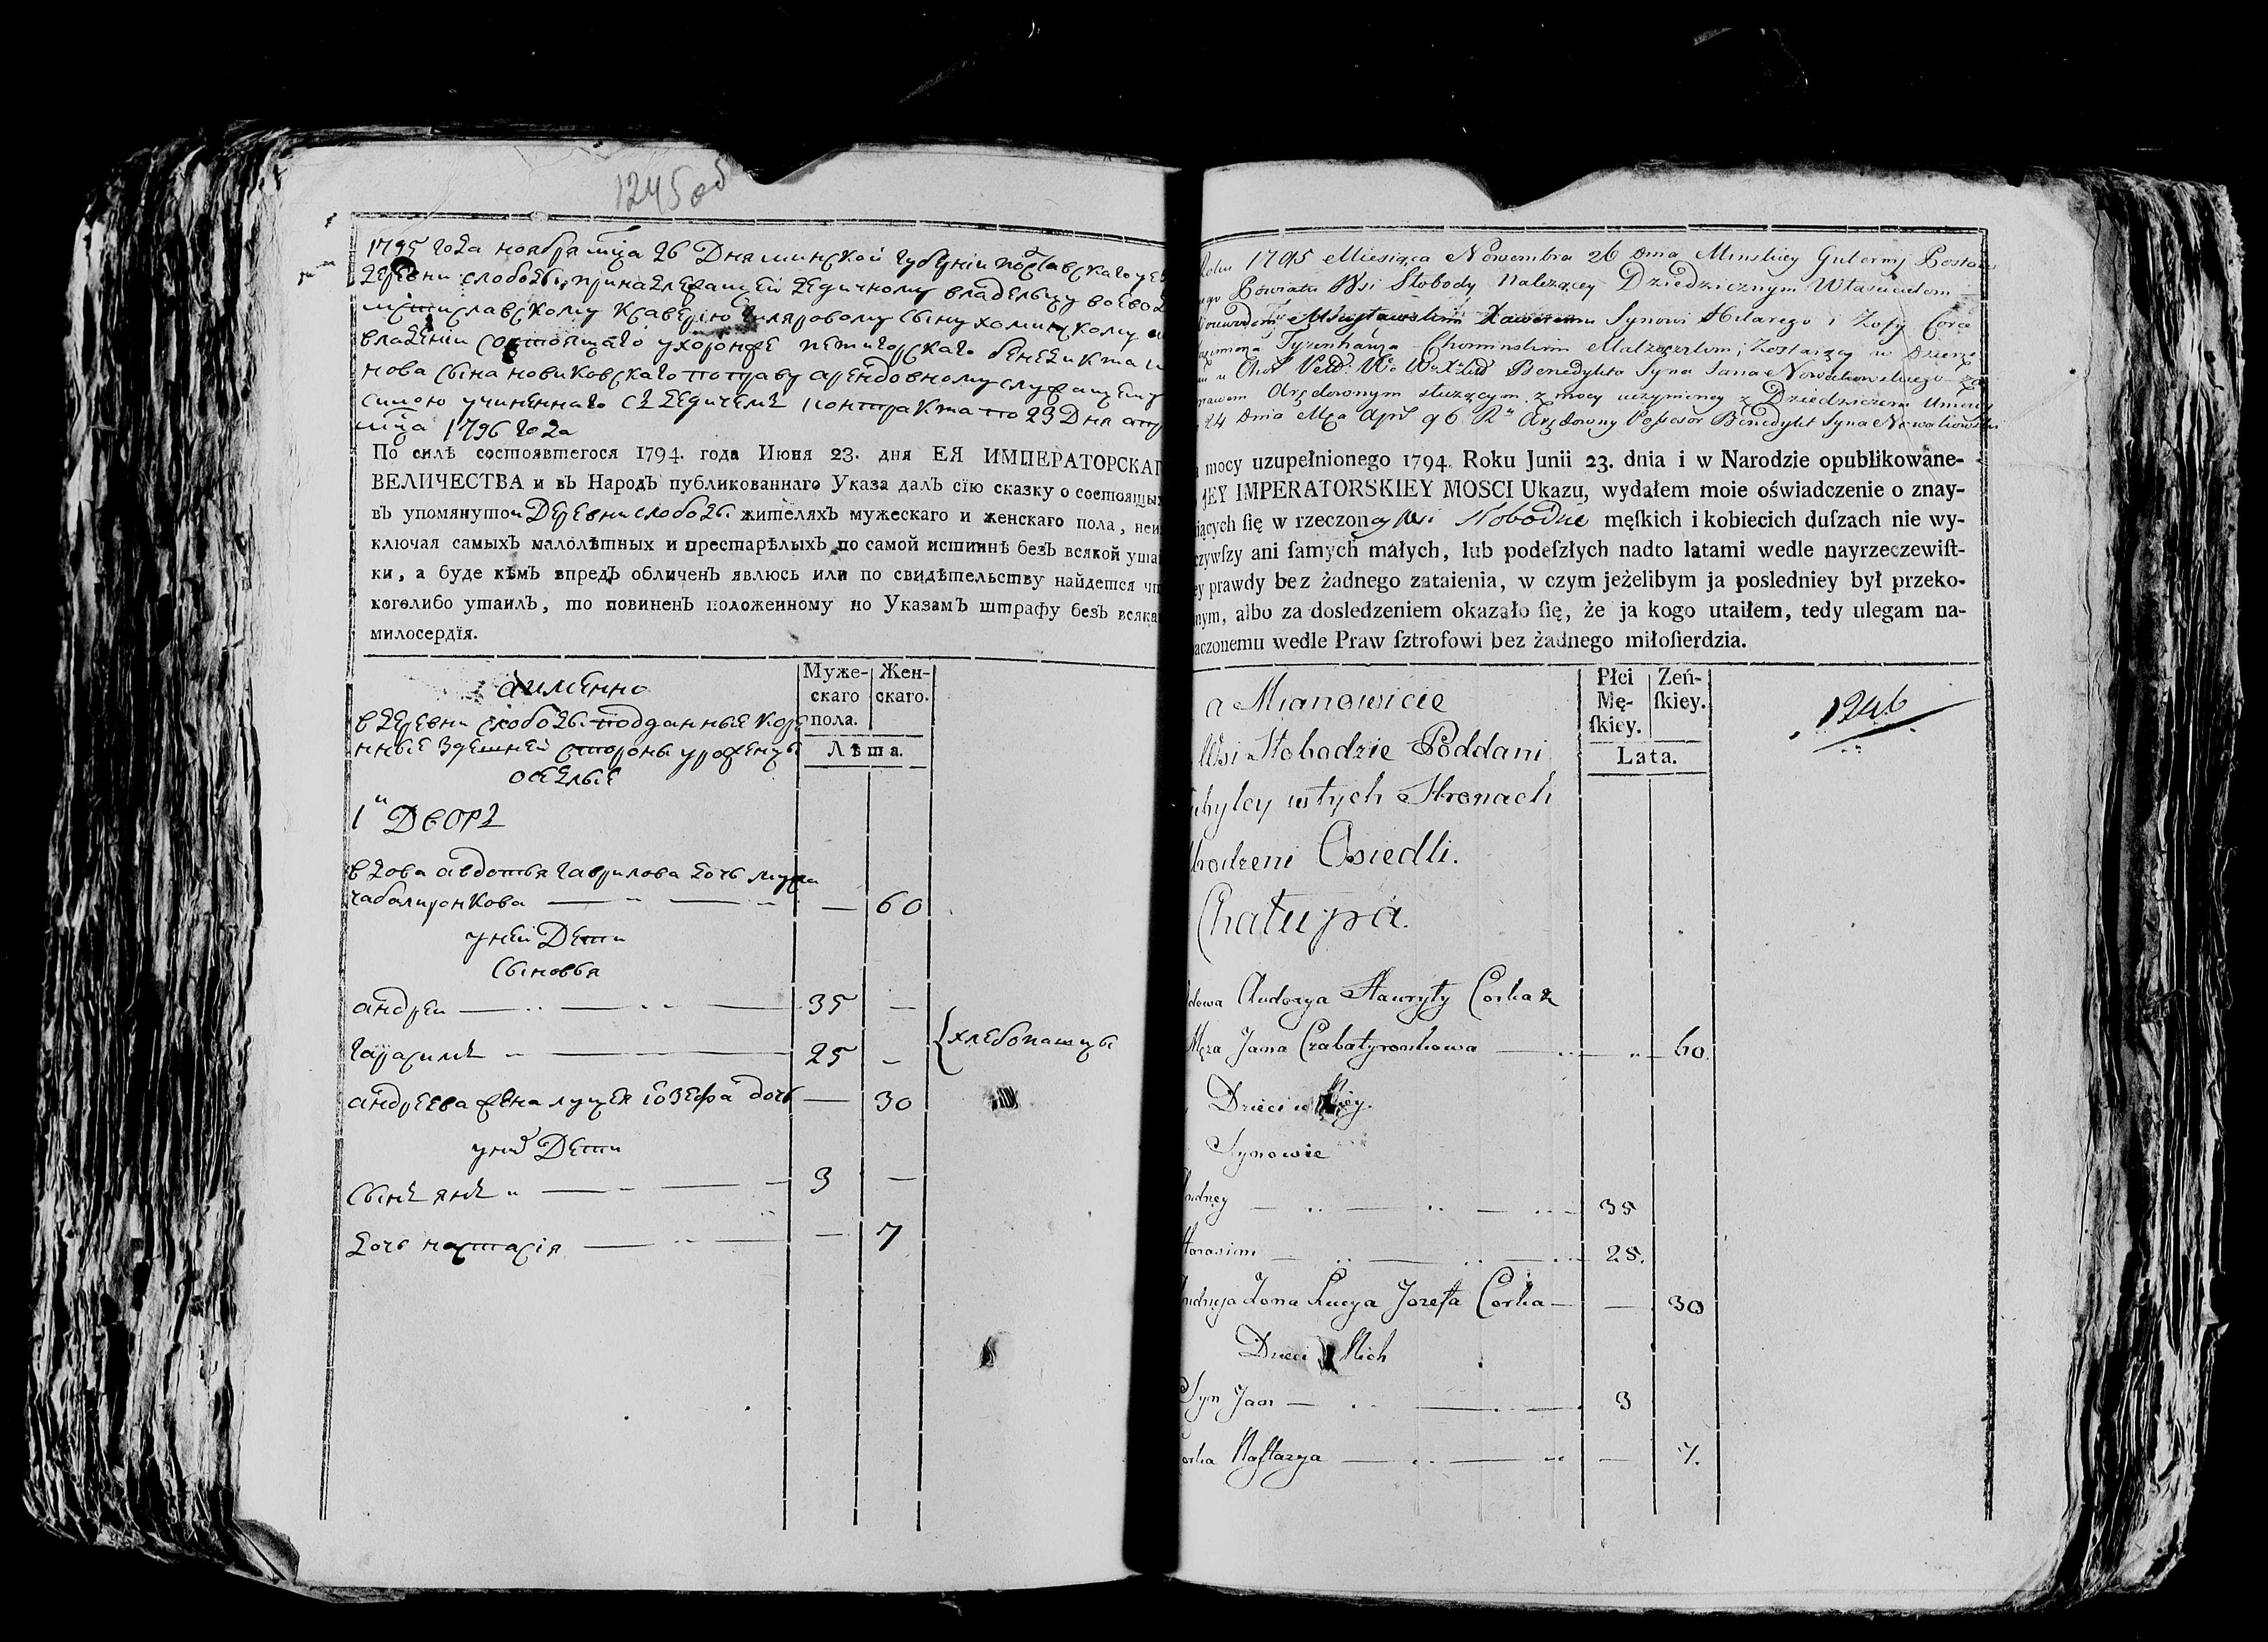 1245 об
1795 года ноября мца 26 дня минской губернїи поставскаго уез
деревни слободы, принадлежащей дедичному владельцу воевод
мстиславскому Ксаверїю гилярову сыну хоминскому
владенїи состоящаго ухоронже петигорскаго бенедикта
нова сына новиковскаго по праву арендовному служащему
силою учиненнаго съ дедичемъ контракта по 23 дня апр
мца 1796 года
По силѣ состоявшегося 1794. года Июня 23. дня ЕЯ ИМПЕРАТОРСКАГ
ВЕЛИЧЕСТВА и въ Народъ публикованнаго Указа далъ сїю сказку о состоящых
въ упомянутой Деревни слободы жителяхъ мужескаго и женскаго пола, неи
ключая самыхъ малолѣтныхъ и престарѣлыхъ по самой истиннѣ безъ всякой утай
ки, а буде кѣмъ впредъ обличенъ явлюсь или по свидѣтельству найдется чт
коголибо утаилъ, то повиненъ положенному по Указамъ штрафу безъ всяка
милосердїя.
а имённо
Муже-скаго пола.
Жен-скаго.
Лѣта.
в деревни слободы подданные коре
нные здешней стороны уроженцы
оседлые
1й Дворъ
вдова авдотья гаврилова дочь
чабатронкова — — 60
у ней Дети
Сыновья
андрей — 35 —
гарасимъ — 25 —
{хлебопашцы
андреева жена луцея їозефа дочь — 30
у них Дети
Сынъ янъ — 3 —
дочь настасїя — — 7
Roku 1795 Miesiąca Nowembra 26 dnia Minskiey Guberny Postaw
ego Powiatu Wsi Słobody należącey Dziedzicznym Właścicielom
Woiewodom Mscisławskim Xaweremu Synowi Hilarego i Zofy Corce
Tyzenhauza Chominskim Małżonkom; Zostaiącey w Dzierż
Benedykta Syna Jana Nowakowskiego
prawem Arędownym służącym z mocy uczynioney z Dziedzicem Umowy
24 Dnia Mca Apryl 96 Ru Arędowny Possesor Benedykt Syna Nowakowski
mocy uzupełnionego 1794. Roku Junii 23. dnia i w Narodzie opublikowane-
JEY IMPERATORSKIEY MOSCI Ukazu, wydałem moie oświadczenie o znay-
iących ſię w rzeczoney Wsi Słobodzie męſkich i kobiecich duſzach nie wy-
czywſzy ani ſamych małych, lub podeſzłych nadto latami wedle nayrzeczewiſt-
ey prawdy bez żadnego zataienia, w czym jeżelibym ja posledniey był przeko-
nym, albo za dosledzeniem okazało ſię, że ja kogo utaiłem, tedy ulegam na-
aczonemu wedle Praw ſztrofowi bez żadnego miłoſierdzia.
a Mianowicie
Płci Mę-ſkiey.
Zeń-ſkiey.
Lata.
1246
Wsi Słobodzie Poddani
bylcy w tych Stronach
hodzeni Osiedli.
Chałupa.
dowa Audocya Hauryły Corka z
Męża Jana Czabatyronkowa — 60.
Dzieci u Niey.
Synowie
Andrzey — 35
Harasim — 25.
Andrzeja Żona Łucya Jozefa Corka — — 30
Dzieci u Nich
Syn Jan — 3
Corka Nastazya — — 7.